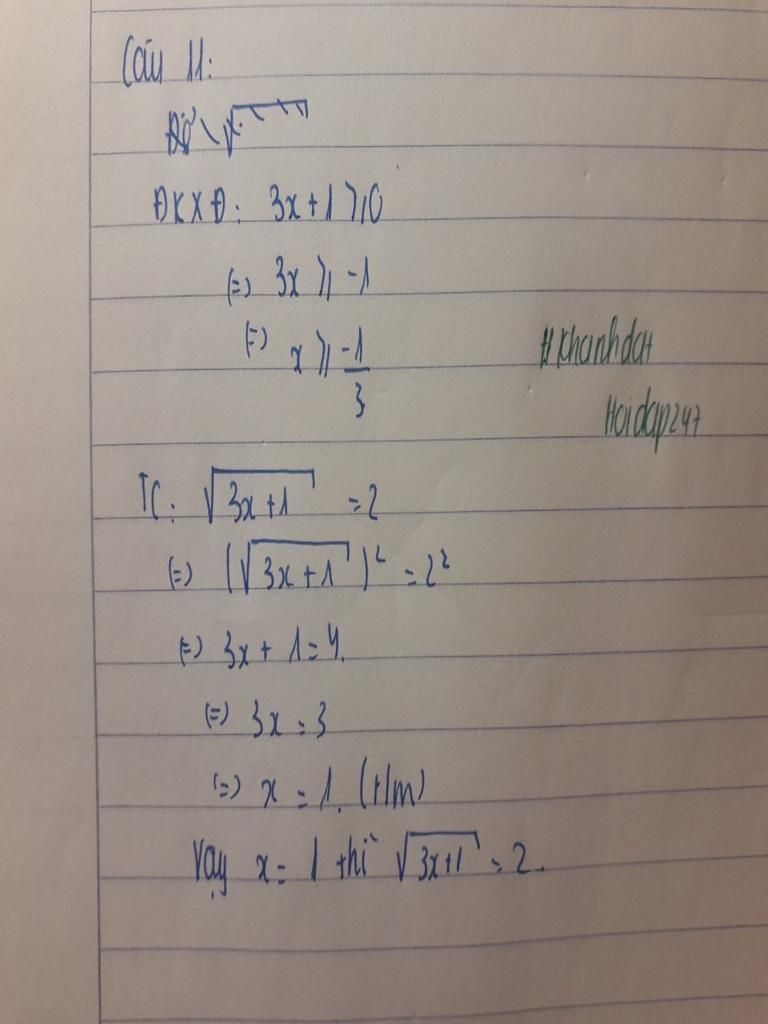 Câu 11:
ĐKXĐ: 3x + 1 ⩾ 0
(=) 3x ⩾ -1
(=) x ⩾ -1/3
#Khanhdat
Hoidap247
TC: √(3x+1) = 2
(=) (√(3x+1))² = 2²
(=) 3x + 1 = 4.
(=) 3x = 3
(=) x = 1. (t/m)
Vậy x = 1 thì √(3x+1) = 2.